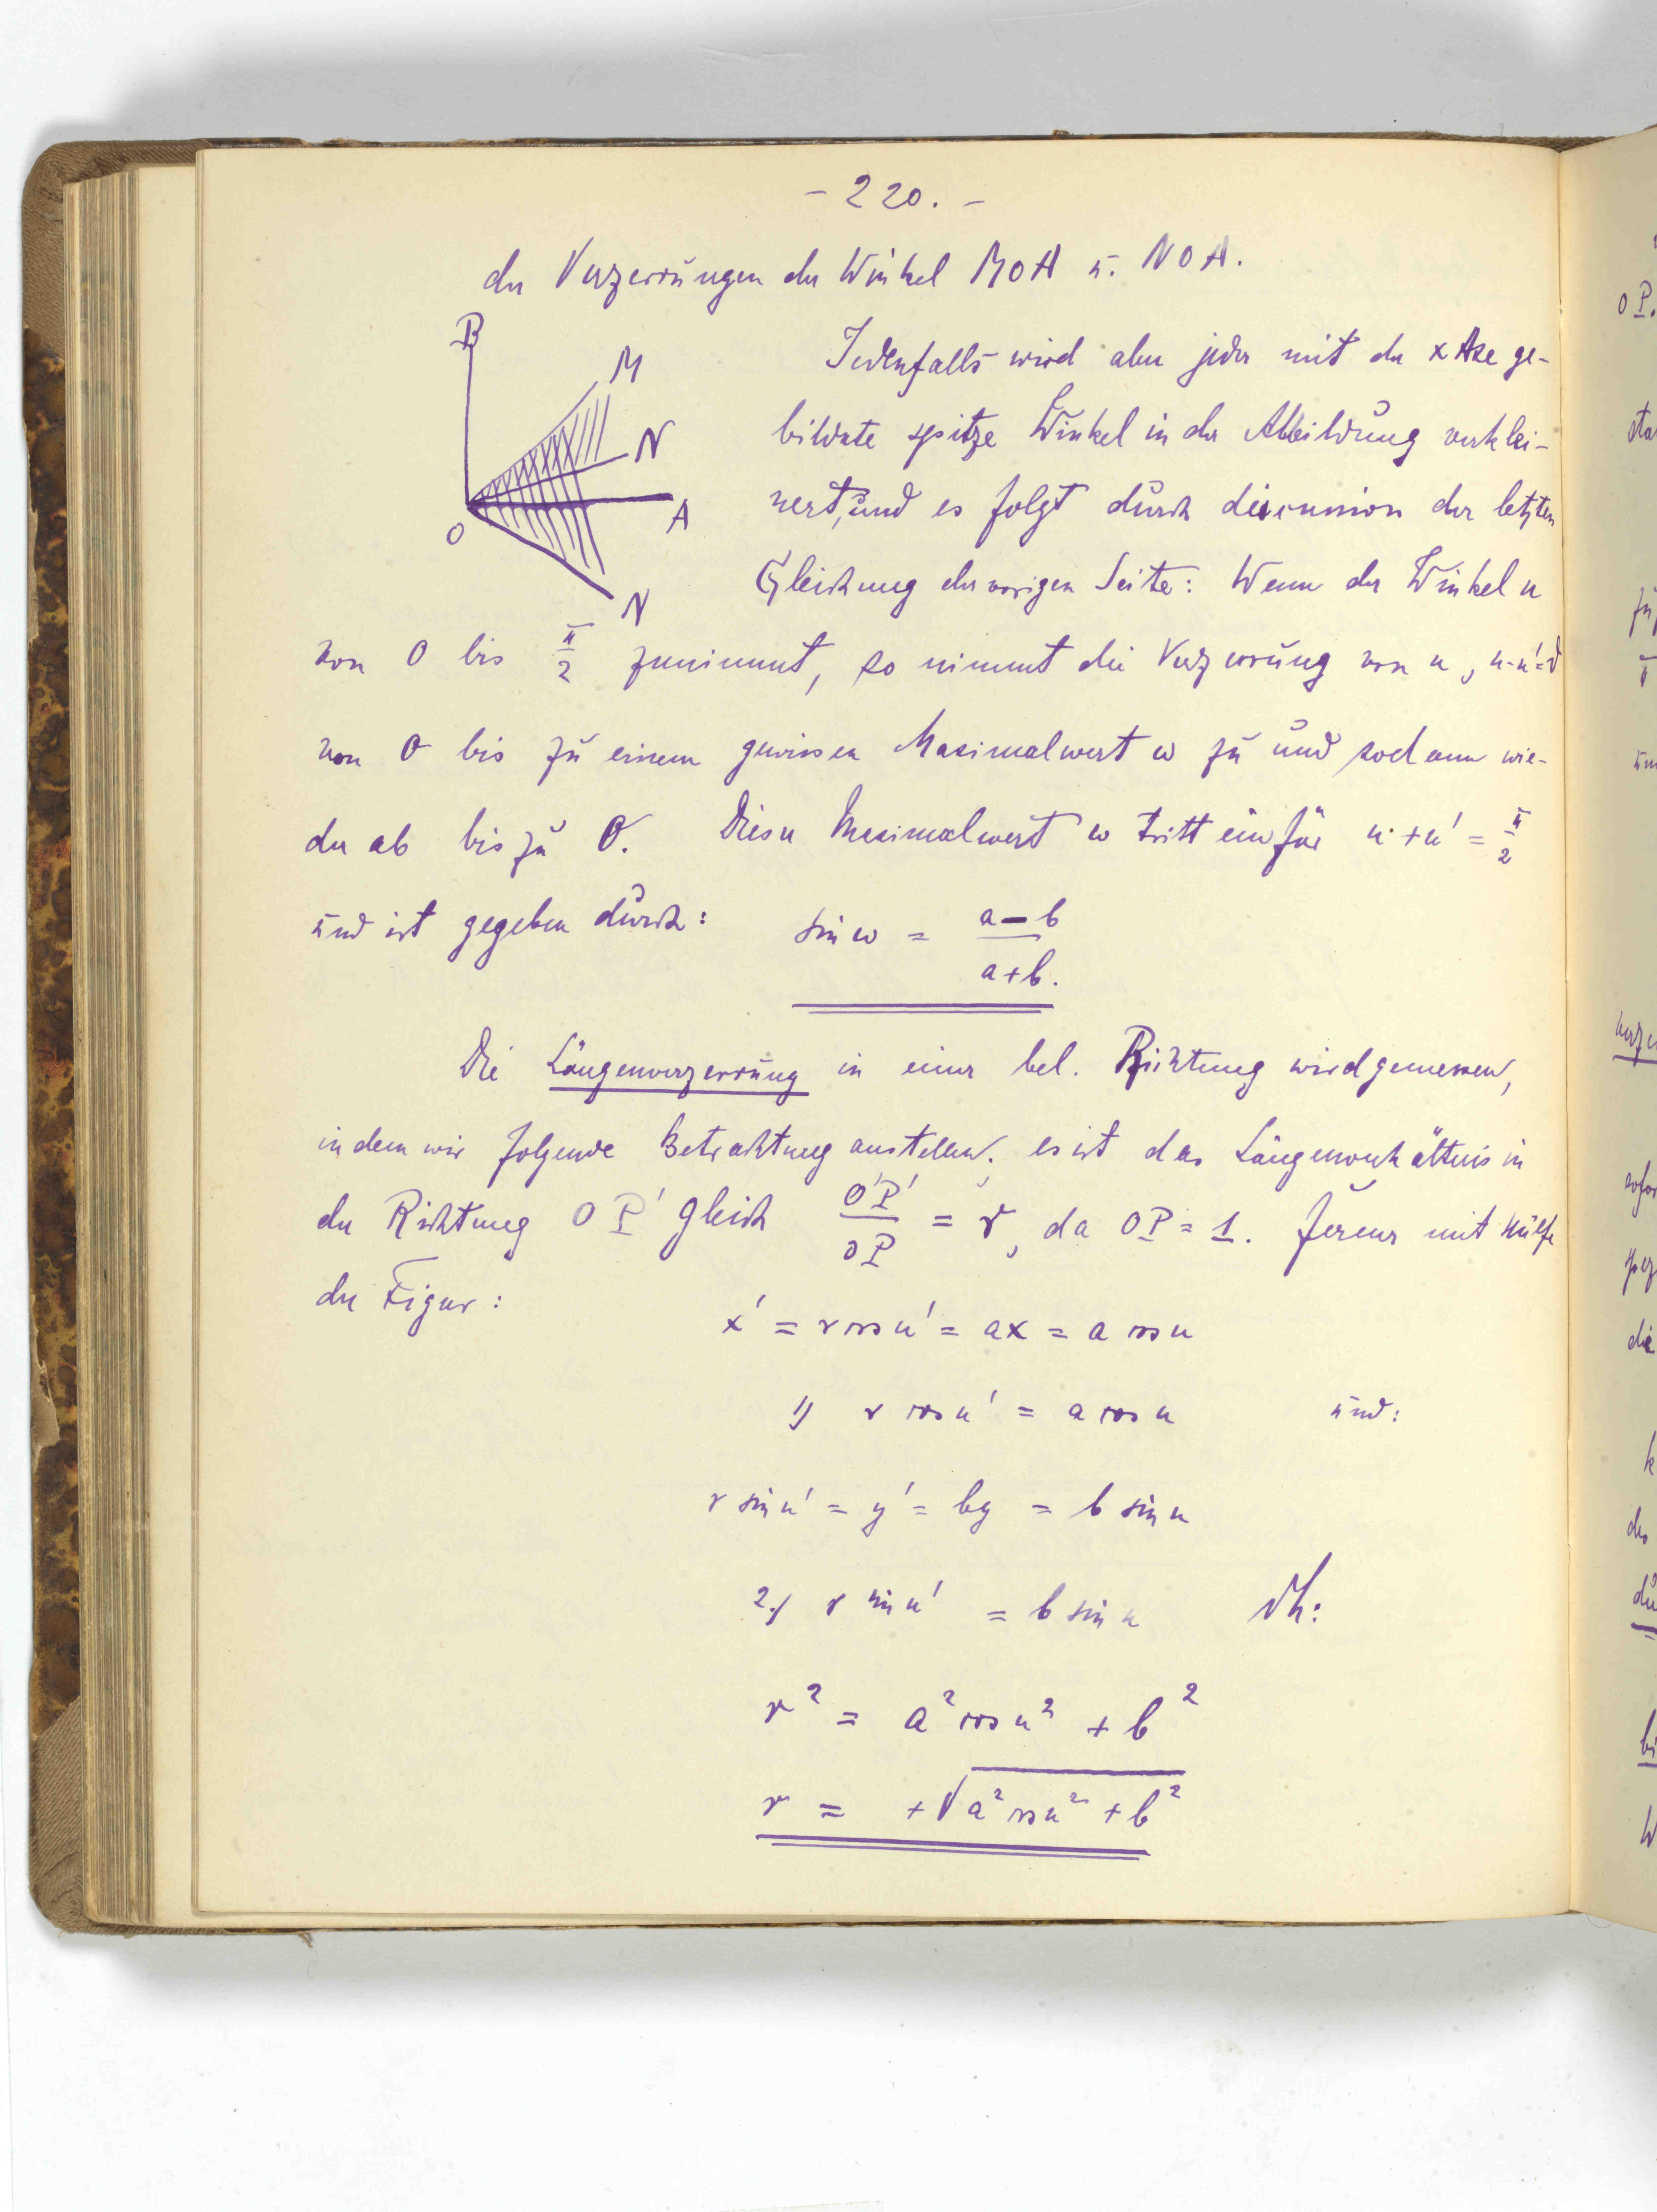 - 220. -
der Verzerrungen der Winkel MOA u. NOA.
B
M
N
A
O
N
Jedenfalls wird aber jeder mit der x Axe ge-
bildete spitze Winkel in der Abbildung verklei-
nert, und es folgt durch discussion der letzten
Gleichung der vorigen Seite: Wenn der Winkel u
von 0 bis π/2 zunimmt, so nimmt die Verzerrung von u, u-u'=
von 0 bis zu einem gewissen Maximalwert ω zu und sodann wie-
der ab bis zu 0. Dieser Maximalwert ω tritt ein für u + u' = π/2
und ist gegeben durch: sin ω = (a - b)/(a + b).
Die Längenverzerrung in einer bel. Richtung wird gemessen,
in dem wir folgende Betrachtung anstellen; es ist das Längenverhältnis in
der Richtung OP' gleich O'P'/OP = r, da OP = 1. ferner mit Hülfe
der Figur:
x' = r cos u' = ax = a cos u
1) r cos u' = a cos u und:
r sin u' = y' = by = b sin u
2.) r sin u' = b sin u dh:
r² = a² cos u² + b²
r = +√(a² cos u² + b²)